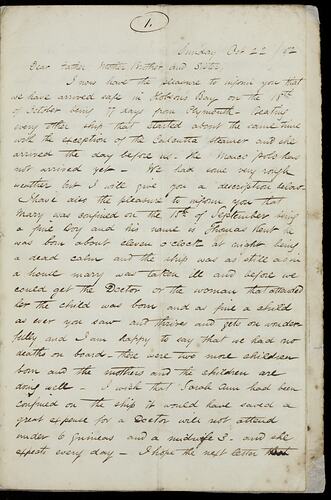 1.
Sunday Oct 22 /52
Dear Father Mother Brother and Sister,
I now have the pleasure to inform you that
we have arrived safe in Hobsons Bay on the 18th
of October being 77 days from Plymouth - Beating
every other ship that started about the same time
with the exception of the Calcutta steamer and she
arrived the day before us - the Marco Polo has
not arrived yet - We had some very rough
weather but I will give you a description below.
I have also the pleasure to inform you that
Mary was confined on the 15th of September being
a fine Boy and his name is Thomas Kent he
was born about eleven oClock at night being
a dead calm and the ship was as still as in
a home mary was taken ill and before we
could get the Doctor or the woman that attended
her the child was born and as fine a child
as ever you saw and thrives and gets on wonder
fully and I am happy to say that we had no
deaths on board - there were two more children
born and the mothers and the children are
doing well - I wish that Sarah Ann had been
confined on the ship it would have saved a
great expense for a Doctor will not attend
under 6 guineas and a midwife 3 - and she
expects every day - I hope the next letter